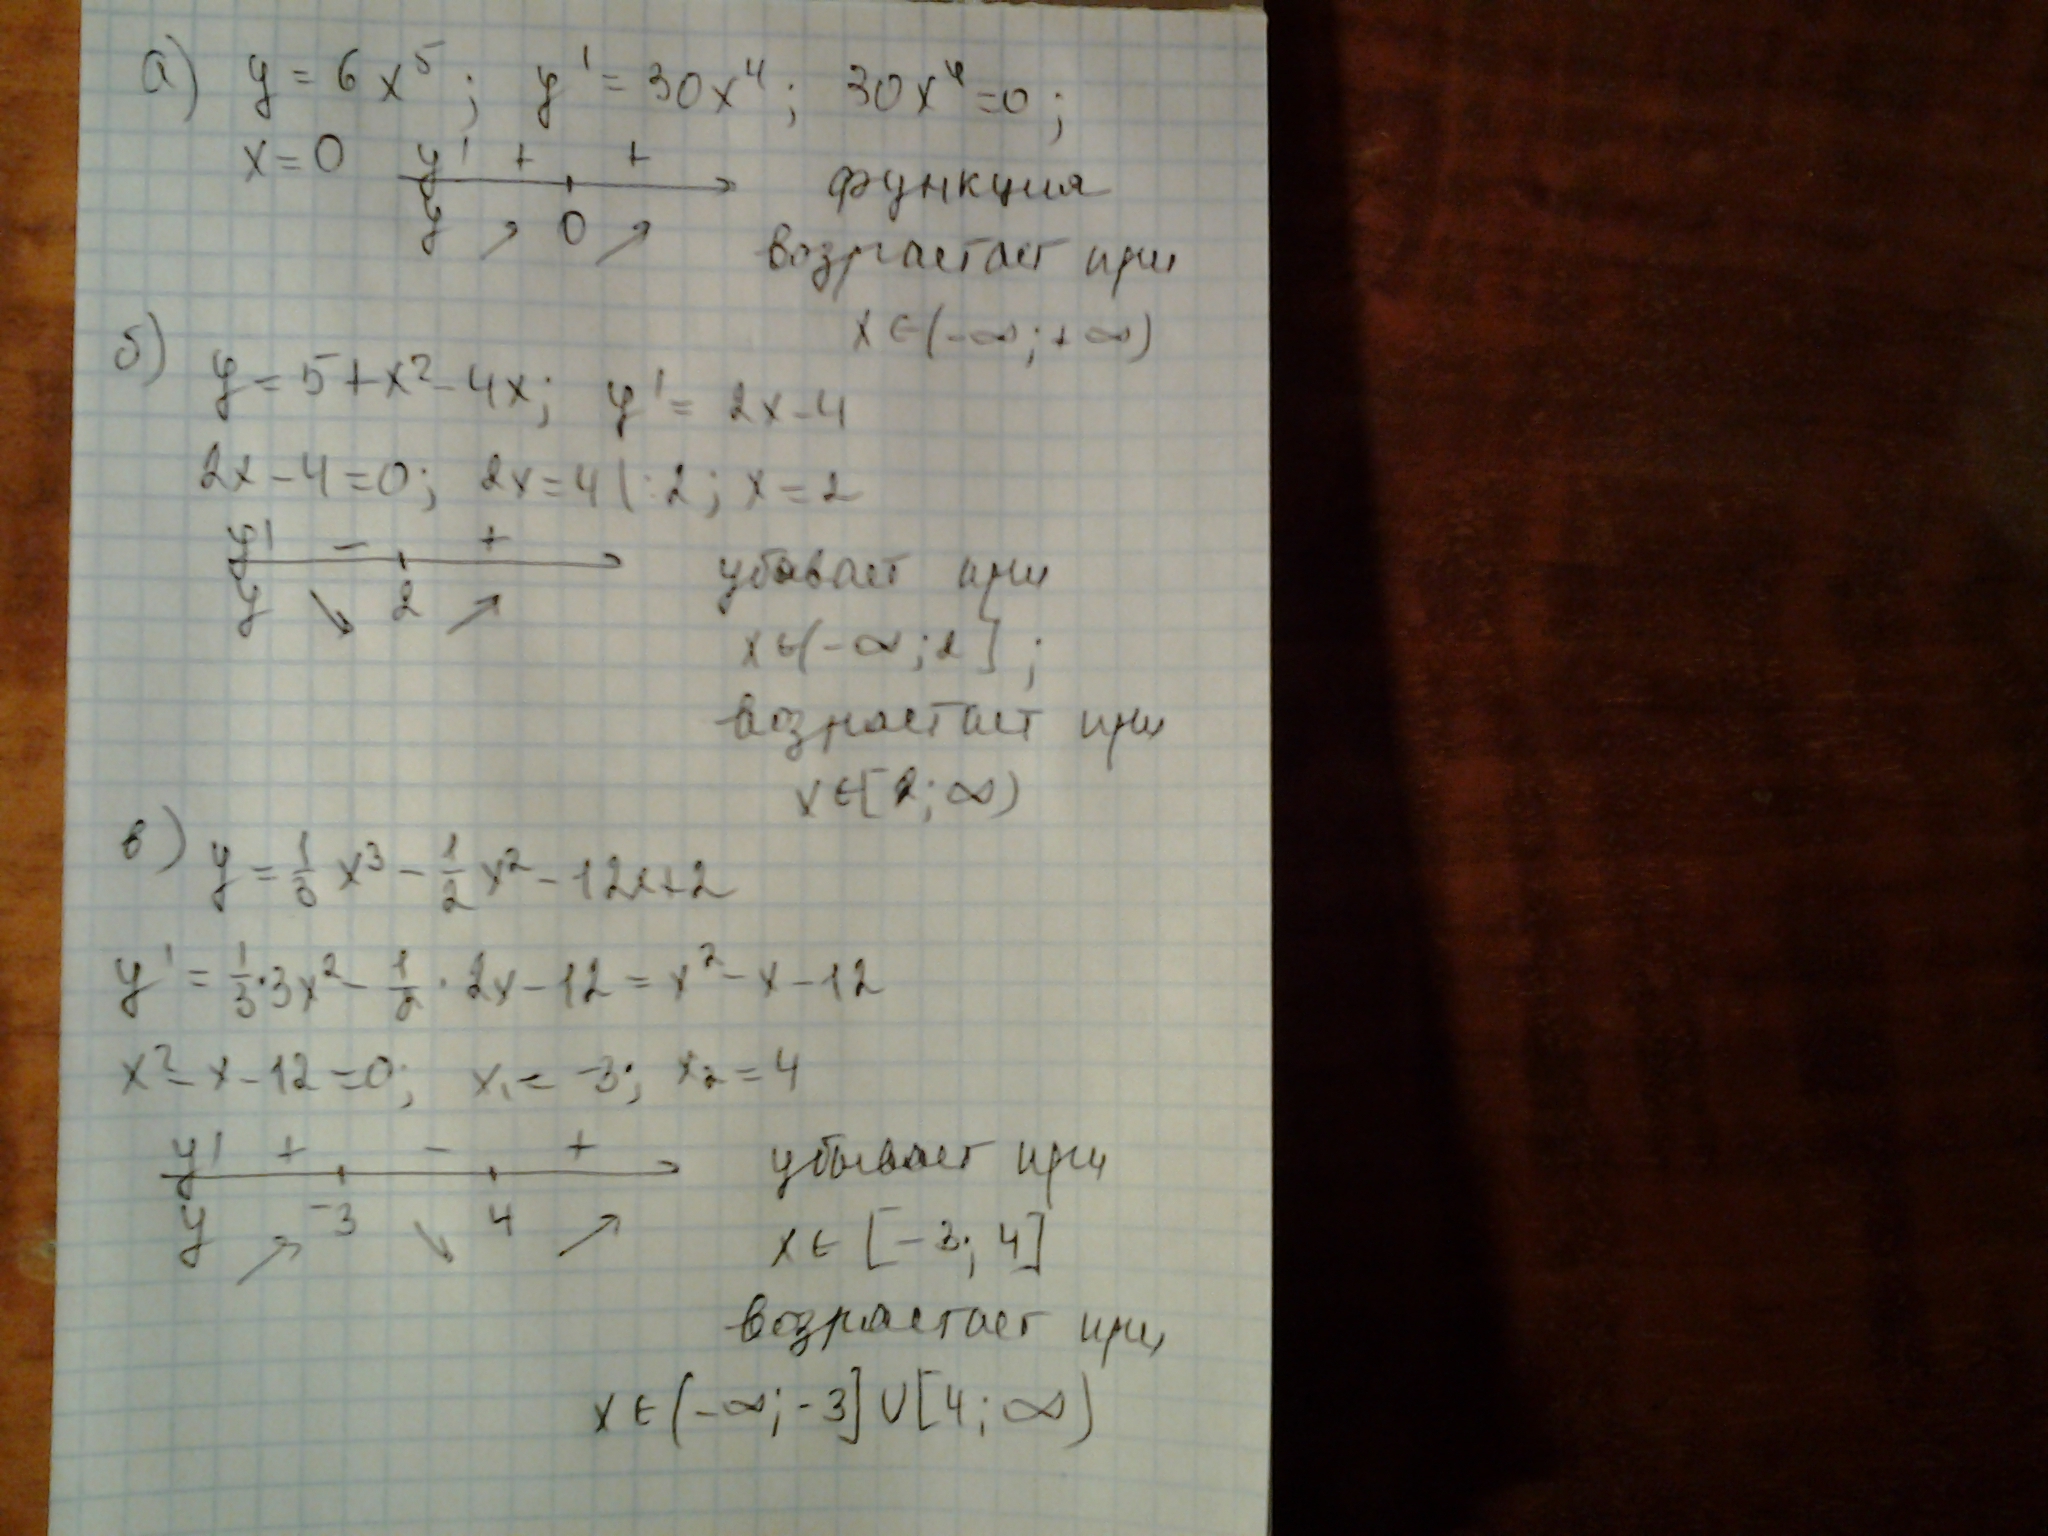 а) y = 6x⁵; y' = 30x⁴; 30x⁴=0;
x=0 y' + + функция
y ↗ 0 ↗
возрастает при
x∈(-∞;+∞)
б)
y = 5+x²-4x; y' = 2x-4
2x-4=0; 2x=4 |:2; x=2
y' - +
y ↘ 2 ↗
убывает при
x∈(-∞;2];
возрастает при
x∈[2;∞)
в) y = 1/3 x³ - 1/2 x² - 12x+2
y' = 1/3·3x² - 1/2·2x-12 = x²-x-12
x²-x-12=0; x₁= -3; x₂=4
y' + - +
y ↗ -3 ↘ 4 ↗
убывает при
x∈[-3; 4]
возрастает при
x∈(-∞;-3]∪[4;∞)